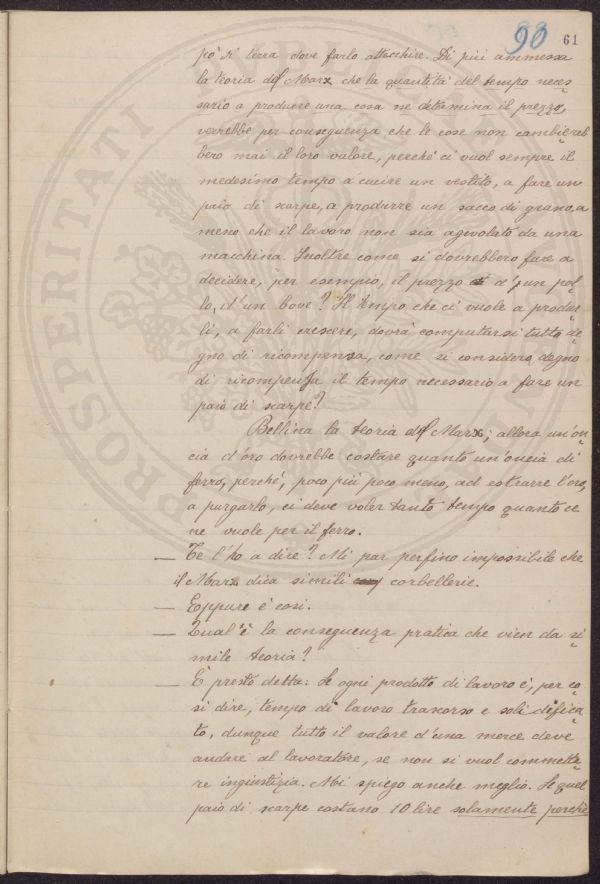 90 61
po' di terra dove farlo attecchire. Di più ammessa
la teoria del Marx che la quantità del tempo neces-
sario a produrre una cosa ne determina il prezzo,
verrebbe per conseguenza che le cose non cambiereb-
bero mai il loro valore, perché ci vuol sempre il
medesimo tempo a cucire un vestito, a fare un
paio di scarpe, a produrre un sacco di grano, a
meno che il lavoro non sia agevolato da una
macchina. Inoltre come si dovrebbero fare a
decidere, per esempio, il prezzo d'un pol-
lo, d'un bove? Il tempo che ci vuole a produr-
li, a farli crescere, dovrà computarsi tutto de-
gno di ricompensa, come si considera degno
di ricompensa il tempo necessario a fare un
paio di scarpe?
Bellina la teoria del Marx; allora un'on-
cia d'oro dovrebbe costare quanto un'oncia di
ferro, perché, poco più poco meno, ad estrarre l'oro,
a purgarlo, ci deve voler tanto tempo quanto ce
ne vuole per il ferro.
— Te l'ho a dire? Mi par perfino impossibile che
il Marx dica simili corbellerie.
— Eppure è così.
— Qual'è la conseguenza pratica che vien da si-
mile teoria?
— È presto detta: Se ogni prodotto di lavoro è, per co-
sì dire, tempo di lavoro trascorso e solidifica-
to, dunque tutto il valore d'una merce deve
andare al lavoratore, se non si vuol commette-
re ingiustizia. Mi spiego anche meglio. Se quel
paio di scarpe costano 10 lire solamente perché
PROSPERITATI